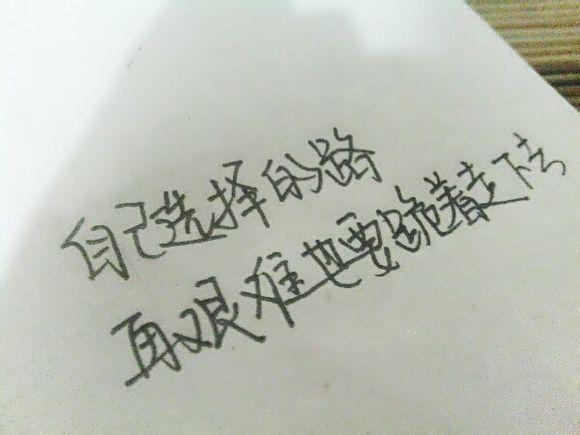 自己选择的路
再艰难也要跪着走下去